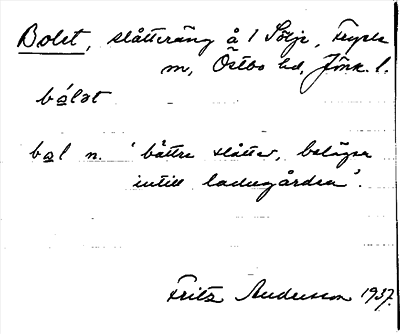 Bolet, slåtteräng å 1 Sölje, Fryele
sn, Östbo hd, Jönk. l.
bólet
bol n. 'bättre slåtter, belägen
intill ladugården'.
Fritz Andersson 1937.